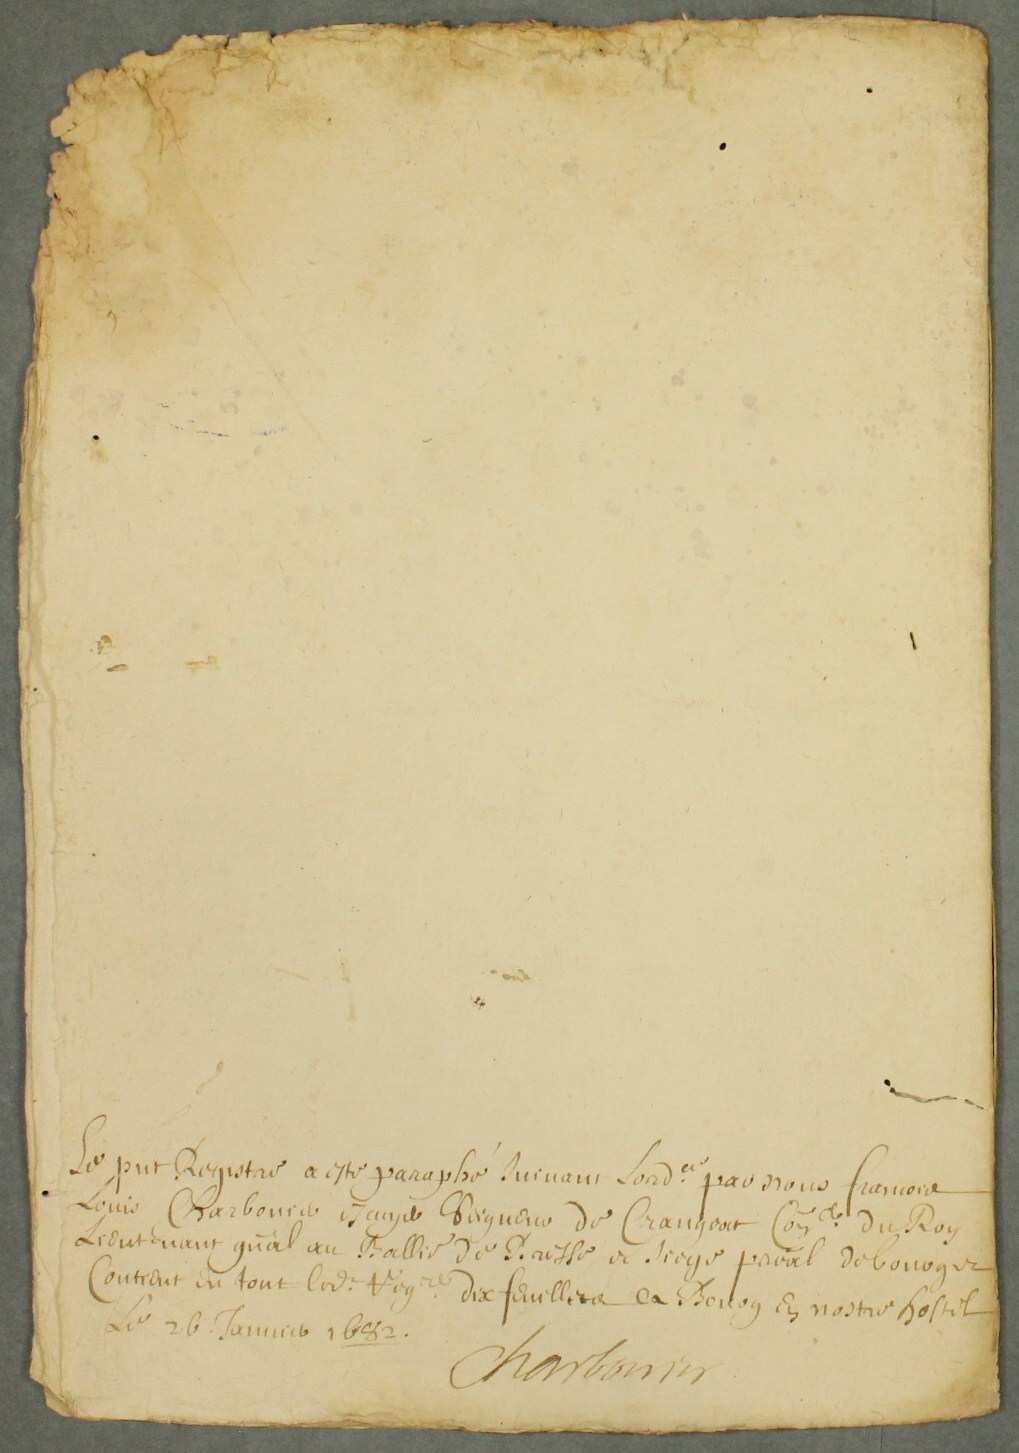 Le pnt Registre a esté paraphé suivant lord.ce par nous francois
Louis Charbonier Seigneur de Crangeat Con.er du Roy
Lieutenant gñal au Balliage de Bresse et siege pñal de bourg et
Contient en tout led. Reg.re dix feuillets a Bourg En nostre hostel
Le 26 Janvier 1682.
Charbonier